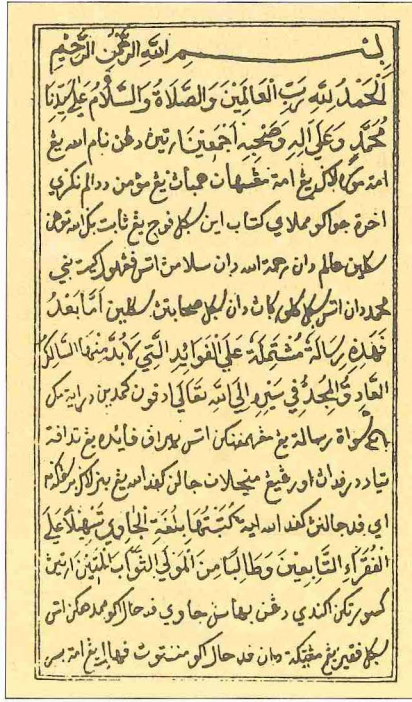 بسم الله الرحمن الرحيم
اَلْحَمْدُ لِلّٰهِ رَبِّ الْعَالَمِيْنَ وَالصَّلَاةُ وَالسَّلَامُ عَلٰى سَيِّدِنَا
مُحَمَّدٍ وَعَلٰى اٰلِهِ وَصَحْبِهِ اَجْمَعِيْنَ ارتين دڠن نام الله يڠ
امة موره لاكي يڠ امة مڠسيهان همباث يڠ مؤمن ددالم نكري
اخرة جوكو مملاي كتاب اين سكل فوج يڠ ثابت بكي الله توهن
سكلين عالم دان رحمة الله دان سلامن اتس فڠهولو كيت نبي
محمد دان اتس سكل كلوركاث دان سكل صحابتن سكلين اَمَّا بَعْدُ
فَهٰذِهِ رِسَالَةٌ مُشْتَمِلَةٌ عَلَى الْفَوَائِدِ الَّتِيْ لَابُدَّ مِنْهَا لِلسَّالِكِ
الصَّادِقِ الْمُجِدِّ فِيْ سَيْرِهِ اِلَى اللهِ تَعَالٰى ادفون كمدين درايت مك
اينله سوات رسالة يڠ مڠهمفنكن اتس ببراف فائده يڠ تيادافة
تياد درفدان اورڠ يڠ منجالان جالن كفد الله يڠ بنر لاكي
اي فد جالنن كفد الله ايت كَتَبْتُهَا بِلُغَةِ الْجَاوِيْ تَسْهِيْلًا عَلَى
الْفُقَرَاءِ التَّابِعِيْنَ وَطَالِبًا مِنَ الْمَوْلَى الثَّوَابَ الْمَتِيْنَ ارتين
كسورتكن اكندي دڠن بهاس جاوي فد حال اكو ممدهكن اتس
سكل فقير يڠ مڠيكة دان فد حال اكو منونتوت فهلا يڠ امة بسر